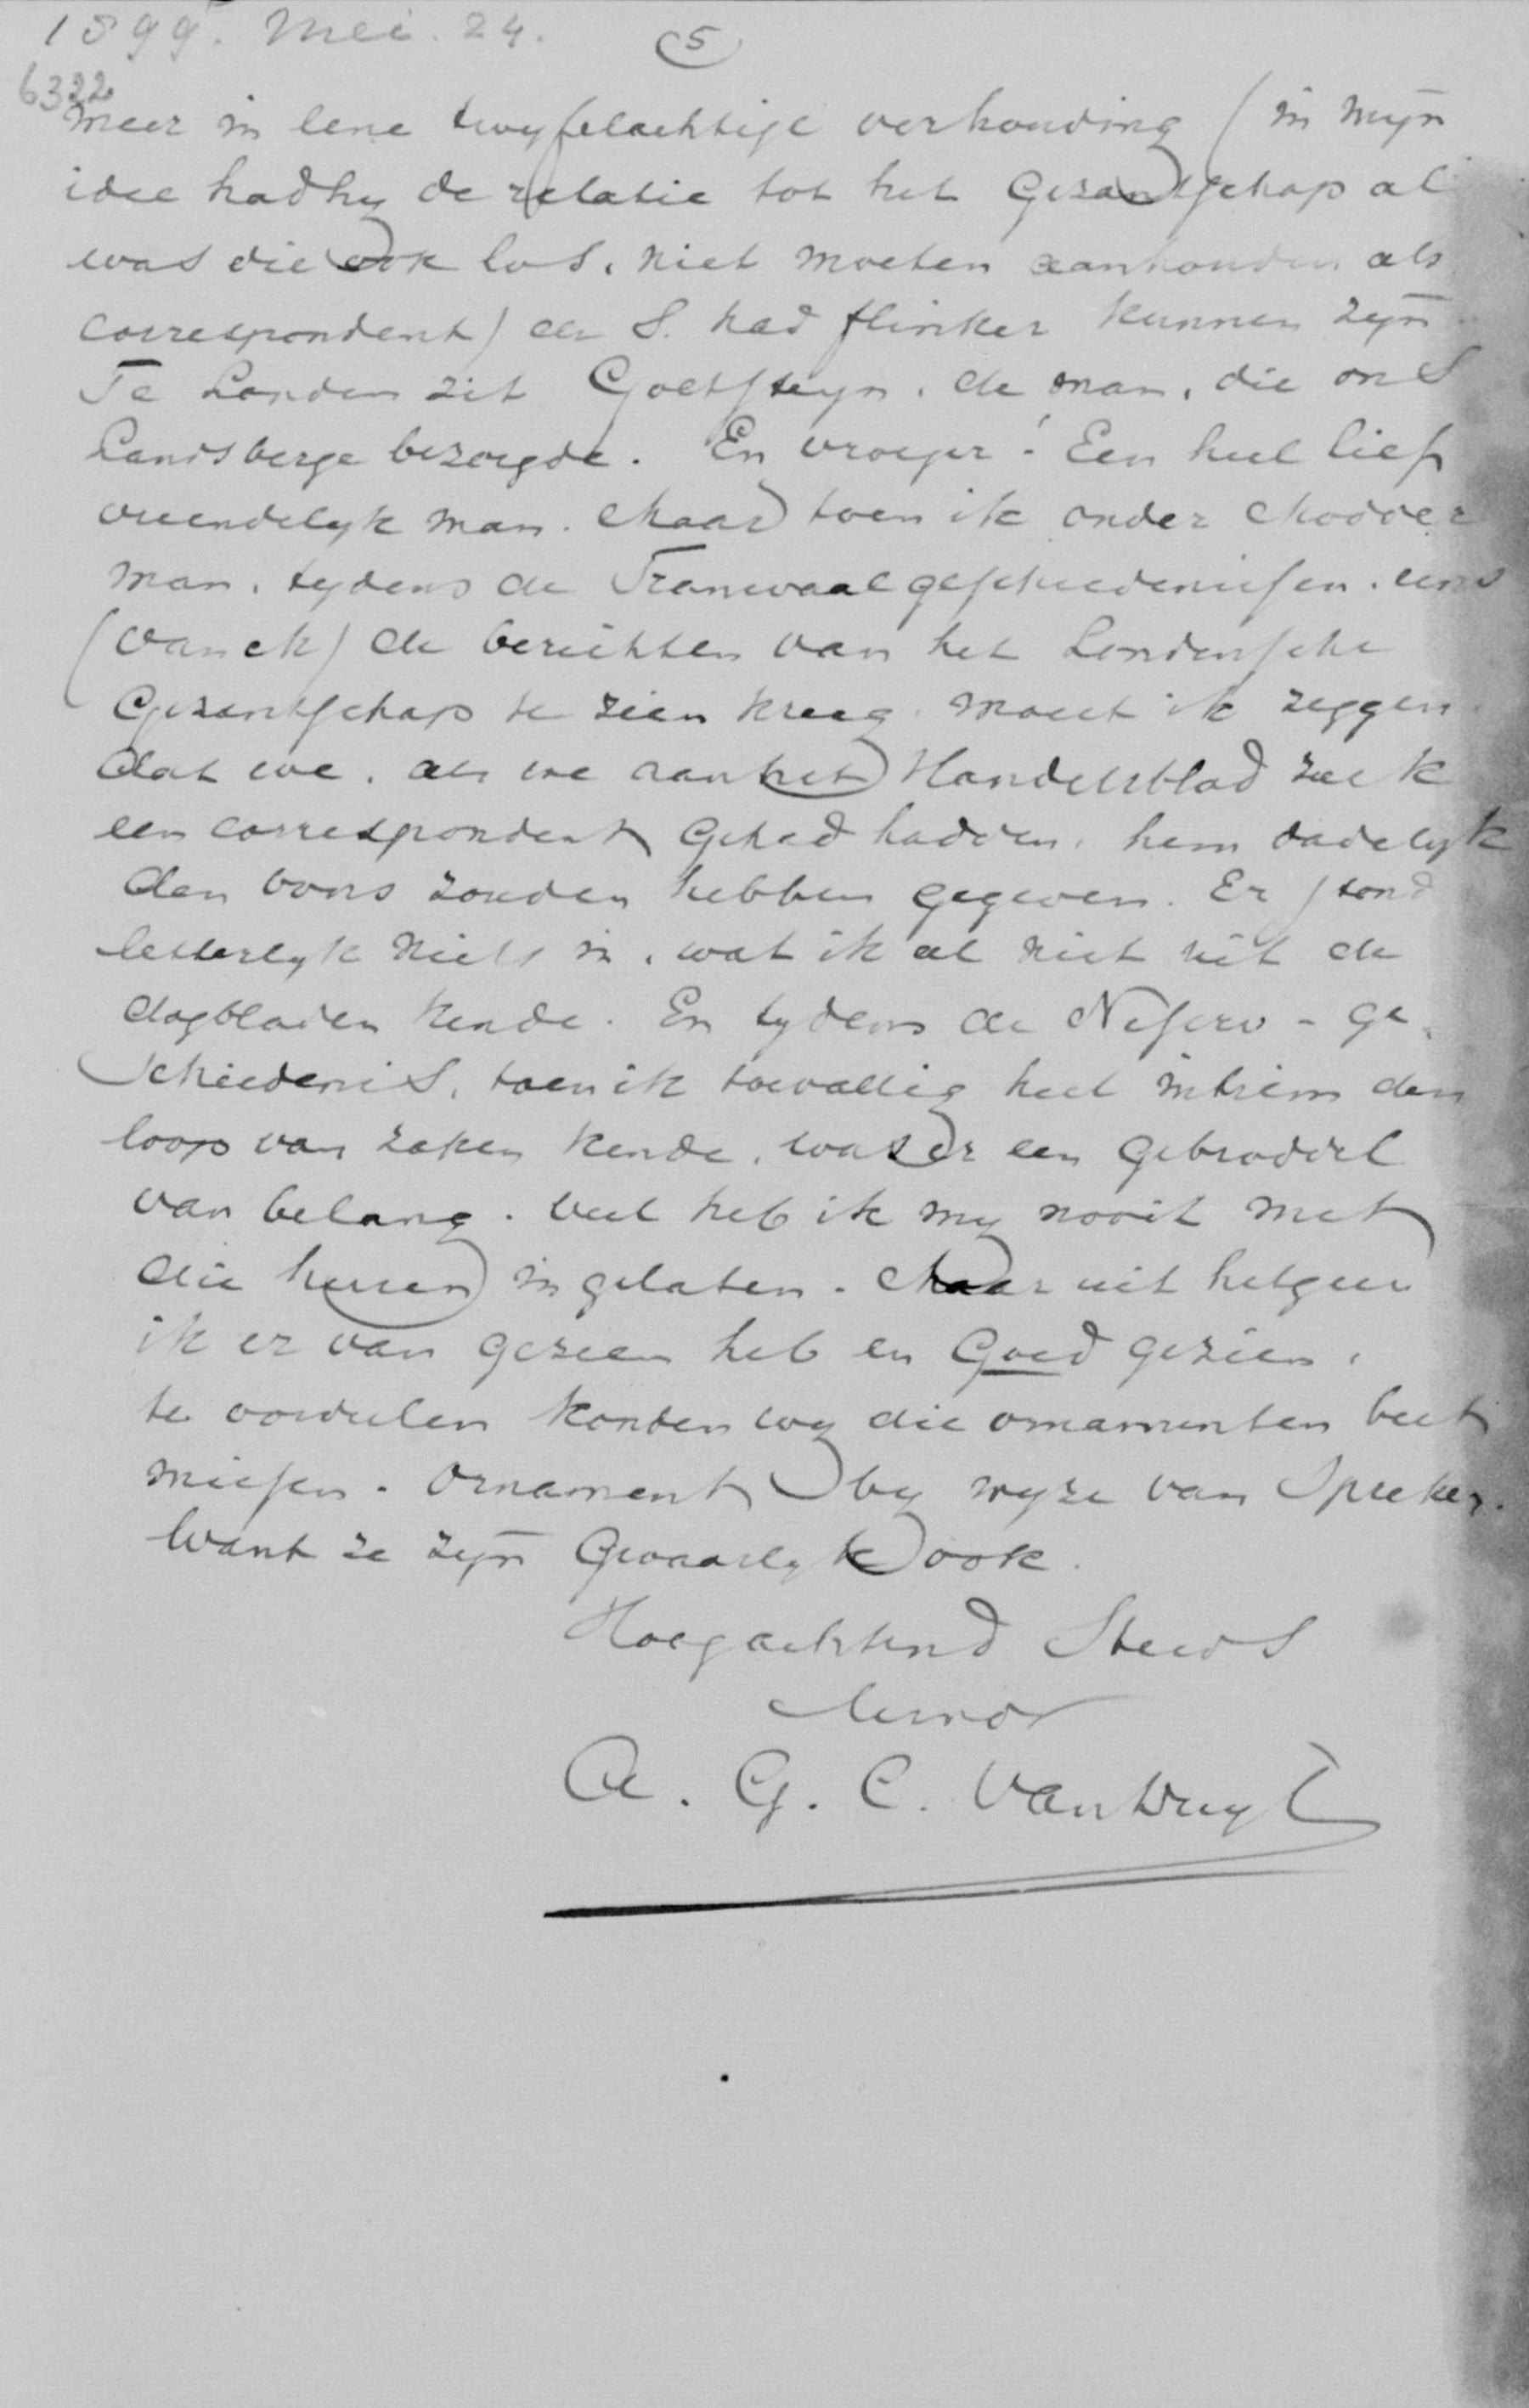 1899. Mei. 24.
5
6322
meer in eene twyfelachtige verhouding (in mijn
idee had hy de relatie tot het Gezantschap al
was die ook los, niet moeten aanhouden als
correspondent) en S. had flinker kunnen zijn.
Te Londen zit Goltsteyn, de man, die ons
Landsberge bezorgde. En vroeger! Een heel lief
vriendelyk man. Maar toen ik onder Modder
man, tydens de Transvaal geschiedenissen, eens
de berichten van het Londensche
Gezantschap te zien kreeg moet ik zeggen
dat we, als we aan het Handelsblad zulk
een correspondent gehad hadden, hem dadelyk
den bons zouden hebben gegeven. Er stond
letterlyk niets in, wat ik al niet uit de
dagbladen kende. En tydens de Nisero-ge
schiedenis, toen ik toevallig heel intiem den
loop van zaken kende, was er een gebroddel
van belang. Veel heb ik my nooit met
die heeren in gelaten. Maar uit hetgeen
ik er van gezien heb en goed gezien,
te oordeelen konden wy die ornamenten best
missen. Ornament by wyze van spreken.
Want ze zijn gevaarlyk ook.
Hoogachtend Steeds
A. G. C. Van Duyl